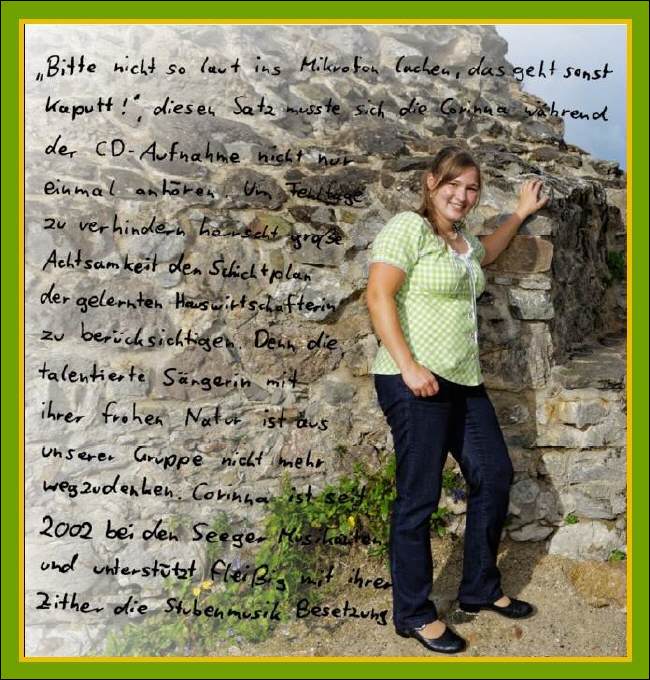 „Bitte nicht so laut ins Mikrofon lachen, das geht sonst
kaputt!", diesen Satz musste sich die Corinna während
der CD-Aufnahme nicht nur
einmal anhören. Um Fehltage
zu verhindern herrscht große
Achtsamkeit den Schichtplan
der gelernten Hauswirtschafterin
zu berücksichtigen. Denn die
talentierte Sängerin mit
ihrer frohen Natur ist aus
unserer Gruppe nicht mehr
wegzudenken. Corinna ist seit
2002 bei den Seeger Musikanten
und unterstützt fleißig mit ihrer
Zither die Stubenmusik Besetzung